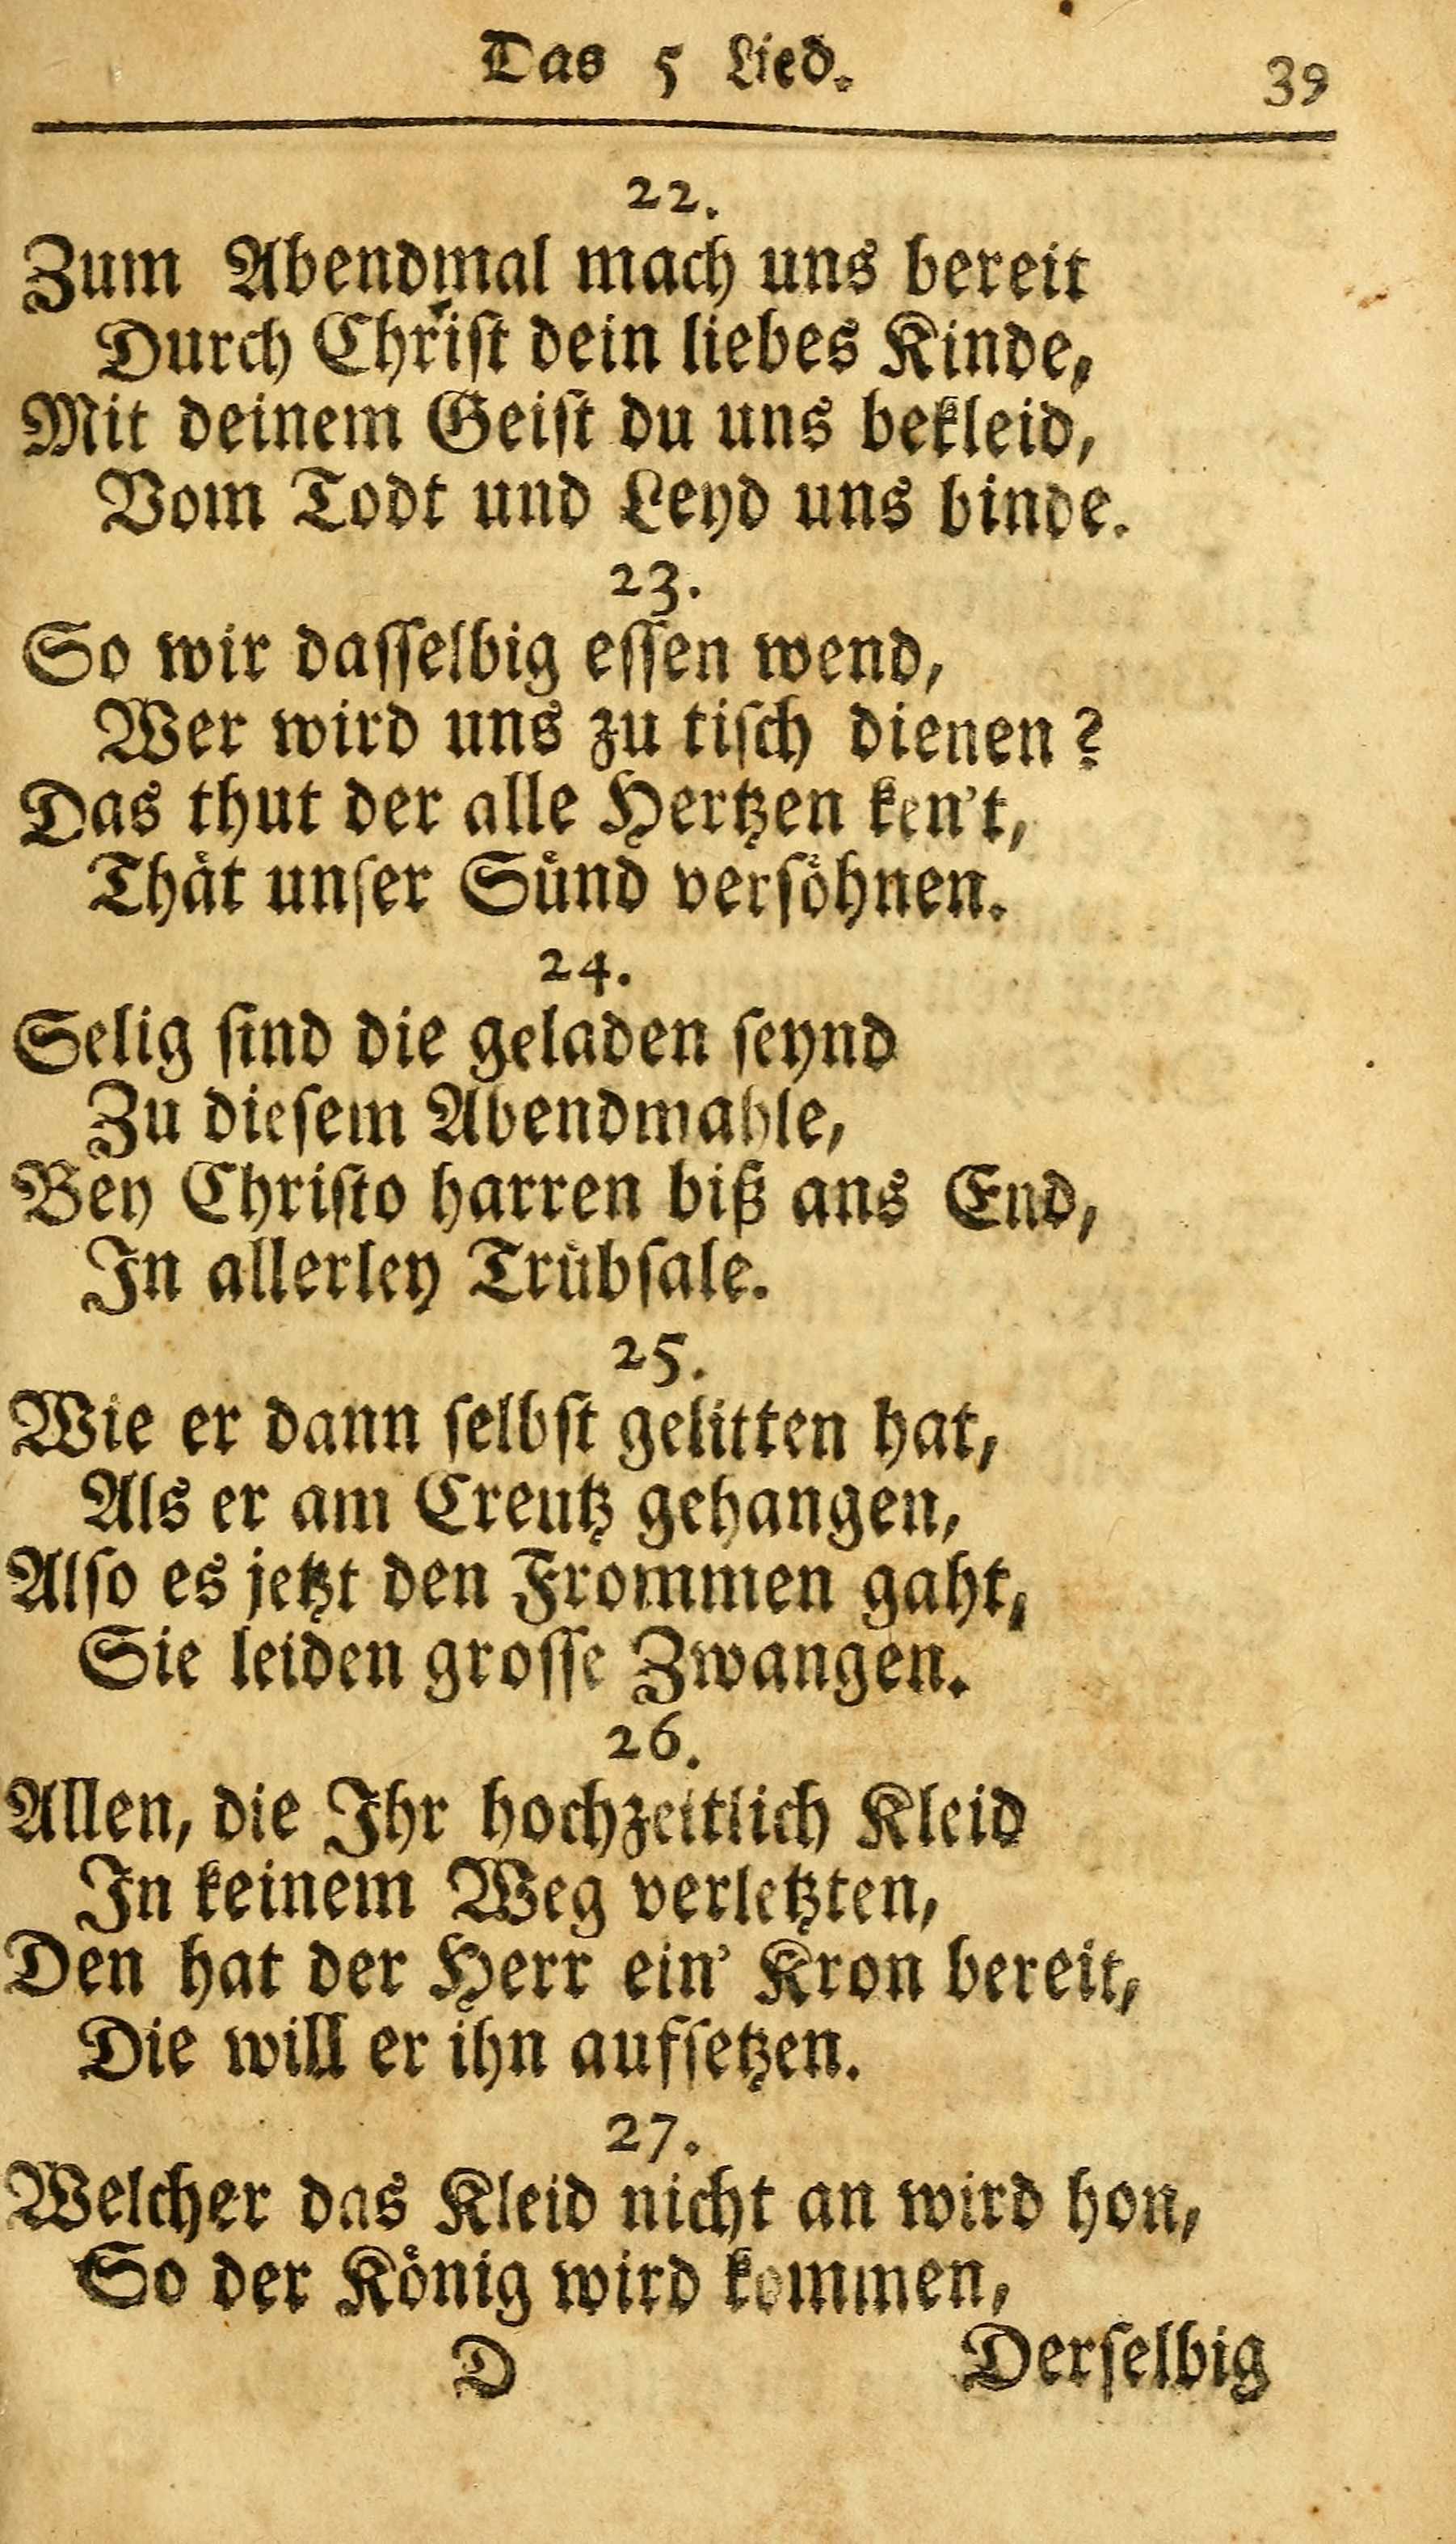 Das 5 Lied.
39
22.
Zum Abendmal mach uns bereit
Durch Chriſt dein liebes Kinde,
Mit deinem Geiſt du uns bekleid,
Vom Todt und Leyd uns binde.
23.
So wir daſſelbig eſſen wend,
Wer wird uns zu tiſch dienen?
Das thut der alle Hertzen ken't,
Thaͤt unſer Suͤnd verſoͤhnen.
24.
Selig ſind die geladen ſeynd
Zu dieſem Abendmahle,
Bey Chriſto harren biß ans End,
In allerley Truͤbſale.
25.
Wie er dann ſelbſt gelitten hat,
Als er am Creutz gehangen,
Alſo es jetzt den Frommen gaht,
Sie leiden groſſe Zwangen.
26.
Allen, die Ihr hochzeitlich Kleid
In keinem Weg verletzten,
Den hat der Herr ein' Kron bereit,
Die will er ihn aufſetzen.
27.
Welcher das Kleid nicht an wird hon,
So der Koͤnig wird kommen,
D
Derſelbig